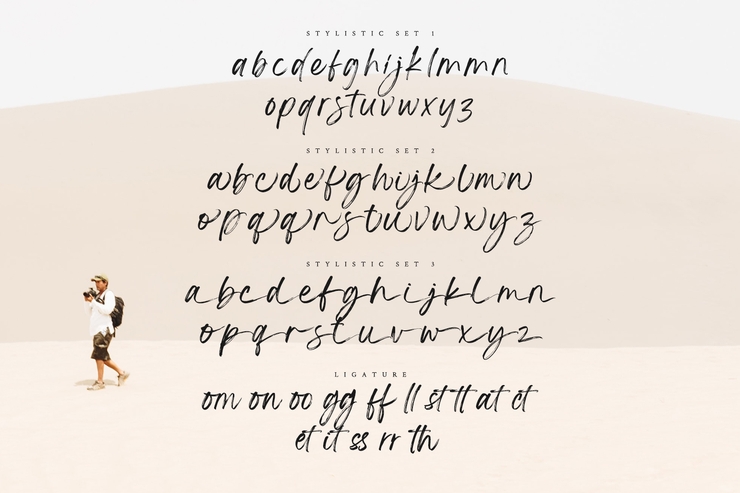 STYLISTIC SET 1
abcdefghijklmmn
opqrstuvwxyz
STYLISTIC SET 2
abcdefghijklmn
opqqrstuvwxyz
STYLISTIC SET 3
abcdefghijklmn
opqrstuvwxyz
LIGATURE
om on oo gg ff ll st tt at ct
et it ss rr th